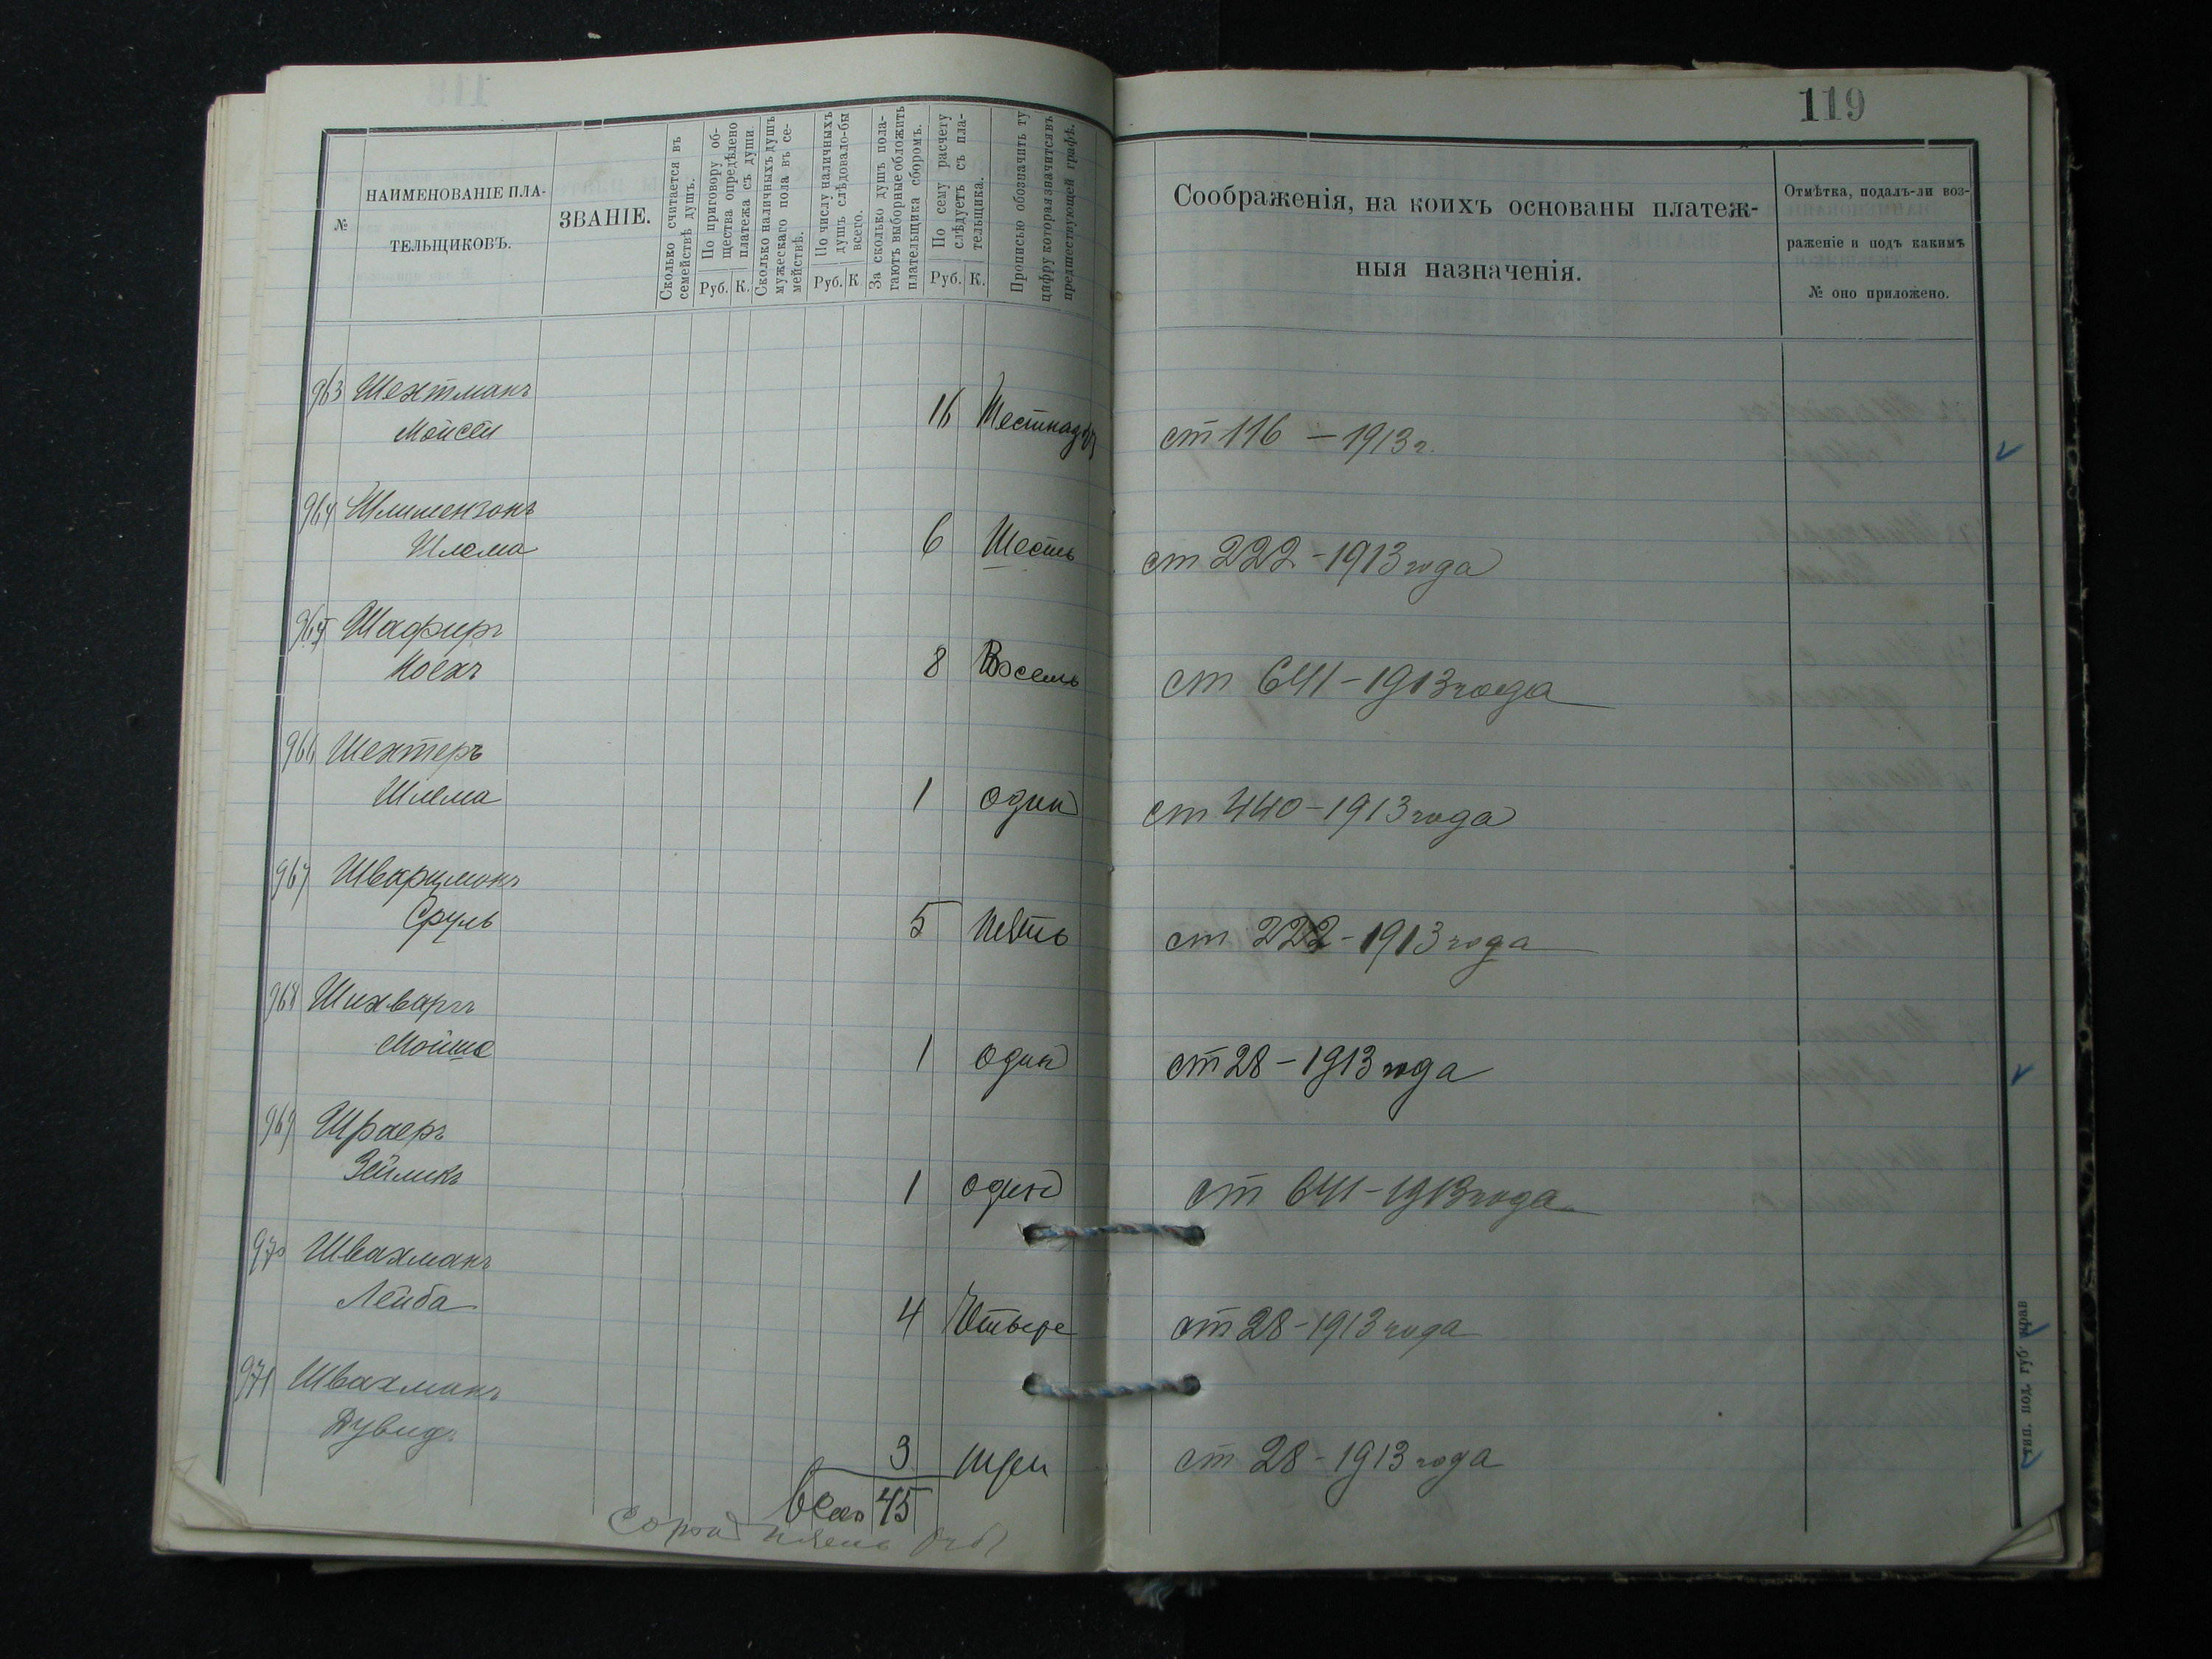 119
№
НАИМЕНОВАНІЕ ПЛА-
ТЕЛЬЩИКОВЪ.
ЗВАНІЕ.
Сколько считается въ
семействѣ душъ.
По приговору об-
щества опредѣлено
платежа съ души.
Руб. К.
Сколько наличныхъ душъ
мужескаго пола въ се-
мействѣ.
По числу наличныхъ
душъ слѣдовало-бы
всего.
Руб. К
За сколько душъ пола-
гаютъ выборные обложить
плательщика сборомъ.
По сему расчету
слѣдуетъ съ пла-
тельщика.
Руб. К.
Прописью обозначить ту
цифру которая значится въ
предшествующей графѣ.
Соображенія, на коихъ основаны платеж-
ныя назначенія.
Отмѣтка, подалъ-ли воз-
раженіе и подъ какимъ
№ оно приложено.
963 Шехтманъ
Мойсей 16 Шестнадць ст 116 – 1913 г.
964
Шлема 6 Шесть ст 222 – 1913 года
965 Шафиръ
Ноехъ 8 Восемь ст 641 – 1913 года
966 Шехтеръ
Шлема 1 один ст 440 – 1913 года
967 Шварцманъ
Сруль 5 Пять ст 222 – 1913 года
968 Шихваргъ
Мойше 1 один ст 28 – 1913 года
969 Шраеръ
Зейликъ 1 один ст 641 – 1913 года
970 Швахманъ
Лейба 4 Четыре ст 28 – 1913 года
971 Швахманъ
Дувидъ 3 три ст 28 – 1913 года
Всего 45
Сорок пять руб
тип. под. губ. прав